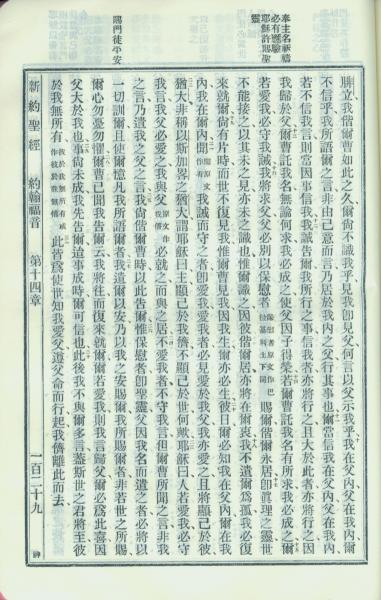 奉主名祈禱
必有應驗
耶穌許賜聖
靈
賜門徒平安
腓立我偕爾曹如此之久爾尚不識我乎見我卽見父何言以父示我乎我在父內父在我內爾
不信乎我所語爾之言非由己意而言乃居於我內之父行其事也爾當信我在父內父在我內
若不信我言則當因事信我我誠告爾我所行之事信我者亦將行之且大於此者亦將行之因
我歸於父爾曹託我名無論何求我必成之使父因子得榮若爾曹託我名有所求我必成之爾
若愛我必守我誡我將求父父必別以保惠者保惠者原文作巴拉基利士下同賜爾偕爾永居卽眞理之靈世
不能接之以其未見亦未之識也惟爾識之因彼偕爾居亦將在爾衷我不遺爾爲孤我必復
來就爾尚有片時而世不復見我惟爾曹見我因我生爾亦必生彼日爾必知我在父內爾在我
內我在爾內聞聞原文作有我誡而守之者卽愛我愛我者必見愛於我父我亦愛之且將顯己於彼
猶大非稱以斯加畧之猶大謂耶穌曰主顯己於我儕不顯己於世何歟耶穌曰人若愛我必守
我言我父必愛之我與父原文作我儕必就之而與之居不愛我者不守我言但爾曹所聞之言非我
之言乃遣我之父之言我尚偕爾曹時以此告爾惟保惠者卽聖靈父因我名而遣之者必將以
一切訓爾且使爾憶凡我所語爾者我遺爾以安乃以我之安賜爾我所賜爾者非若世之所賜
爾心勿憂勿懼爾曹已聞我告爾云我將往而復來就爾若愛我則我言歸父爾必爲此喜因
父大於我也事尚未成我先告爾迨事成時爾可信也此後我不與爾多言蓋斯世之君將至彼
於我無所有此皆爲使世知我愛父遵父命而行起我儕離此而去
新約聖經 約翰福音 第十四章 一百二十九